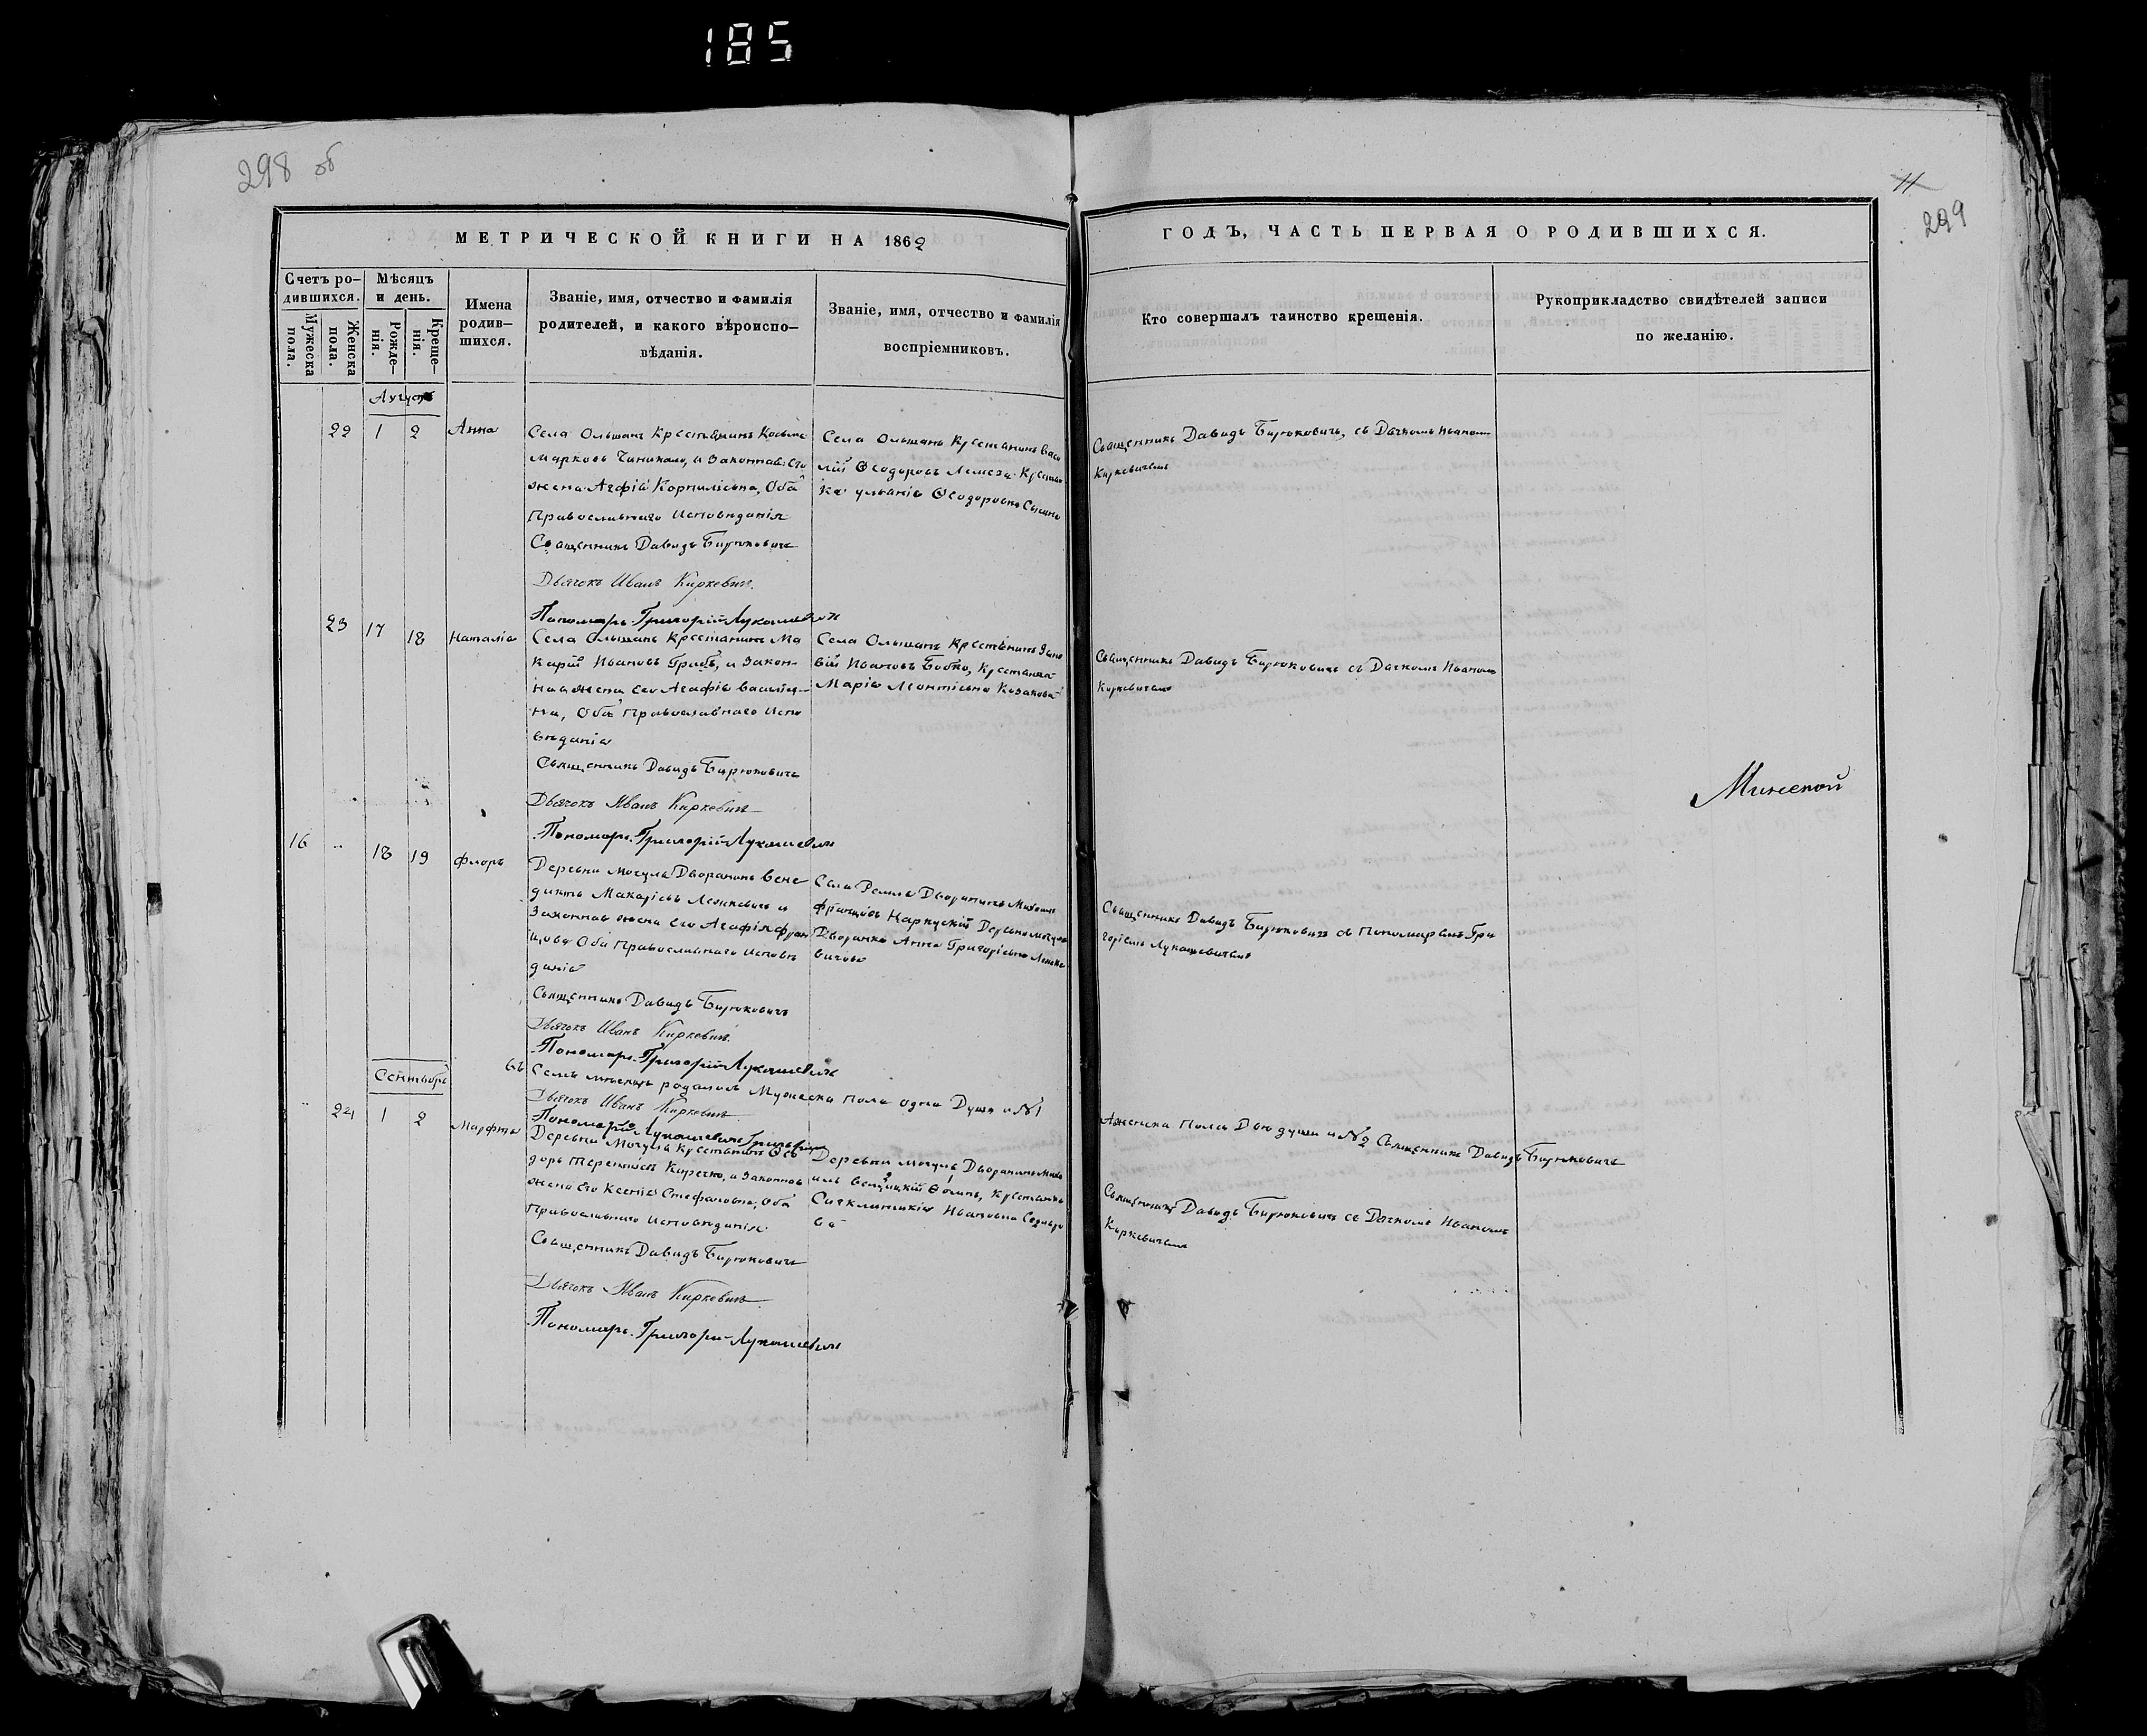 185
298 об
11
299
МЕТРИЧЕСКОЙ КНИГИ НА 1862
ГОДЪ, ЧАСТЬ ПЕРВАЯ О РОДИВШИХСЯ.
Счетъ ро-
дившихся.
Мужеска
пола.
Женска
пола.
Мѣсяцъ
и день.
Рожде-
нія.
Креще-
нія.
Имена
родив-
шихся.
Званіе, имя, отчество и фамилія
родителей, и какого вѣроиспо-
вѣданія.
Званіе, имя, отчество и фамилія
воспріемниковъ.
Кто совершалъ таинство крещенія.
Рукоприкладство свидѣтелей записи
по желанію.
Августъ
22 1 2 Анна
Села Ольшанъ Крестьянинъ Косьма
Марковъ и Законная его
жена Агафія Корниліевна, Оба
Православнаго Исповѣданія
Священникъ Давидъ Бирюковичъ
Дьячокъ Иванъ Киркевичъ.
Пономарь Григорій Лукашевичъ
Села Ольшанъ Крестьянинъ Васи
лій Ѳеодоровъ Лемеза Крестьян
ка Ульянія Ѳеодоровна
Священникъ Давидъ Бирюковичъ, съ Дячкомъ Иваномъ
Киркевичемъ
23 17 18 Наталія
Села Ольшанъ Крестьянинъ Ма
карій Ивановъ Грибъ, и Закон-
ная жена его Агафія Василіев-
на, Оба Православнаго Испо
вѣданія
Священникъ Давидъ Бирюковичъ
Дьячокъ Иванъ Киркевичъ
Пономарь Григорій Лукашевичъ
Села Ольшанъ Крестьянинъ Зино
вій Ивановъ Бобко, Крестьянка
Марія Леонтіевна Козакова
Священникъ Давидъ Бирюковичъ съ Дячкомъ Иваномъ
Киркевичемъ
Минской
16 18 19 Флоръ
Деревни Мочуля Дворянинъ Вене
диктъ Макаріевъ Ленкевичъ и
Законная жена его Агафія Фран
цова Оба Православнаго Исповѣ
данія
Священникъ Давидъ Бирюковичъ
Дьячокъ Иванъ Киркевичъ.
Пономарь Григорій Лукашевичъ
Села Ремля Дворянинъ Михаилъ
Францовъ Деревни Мочуля
Дворянка Анна Григоріевна Ленке
вичова
Священникъ Давидъ Бирюковичъ съ Пономаремъ Гри
горіемъ Лукашевичемъ
Въ Семъ мѣсяцѣ родилось Мужеска пола одна Душа и №1
Дьячокъ Иванъ Киркевичъ
Пономарь Лукашевичъ Григорій
Аженска Пола Двѣ души и №2 Священникъ Давидъ Бирюковичъ
Сентябрь
24 1 2 Марфта
Деревни Мочуля Крестьянинъ Ѳео
доръ Терентіевъ и Законная
жена его Ксенія Стефановна, Оба
Православнаго Исповѣданія
Священникъ Давидъ Бирюковичъ
Дьячокъ Иванъ Киркевичъ
Пономарь Григорій Лукашевичъ
Деревни Мочуля Дворянинъ Миха
илъ Крестьянка
Синклитикія Ивановна
ва
Священникъ Давидъ Бирюковичъ съ Дячкомъ Иваномъ
Киркевичемъ